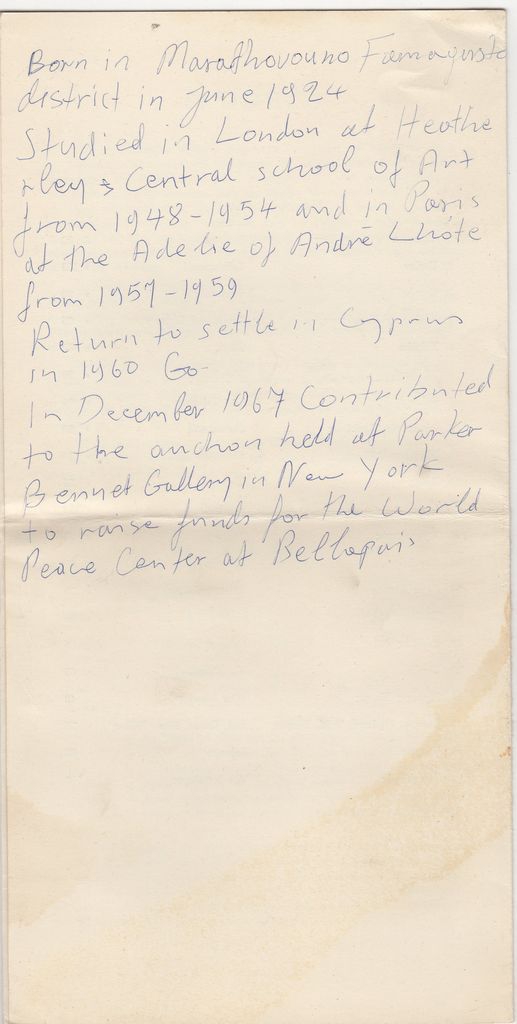 Born in Marathovouno Famagusta
district in June 1924
Studied in London at Heathe
rley & Central school of Art
from 1948-1954 and in Paris
at the Adelie of André Lhóte
from 1957-1959
Return to settle in Cyprus
in 1960 Go-
In December 1967 Contributed
to the auction held at Parker
Bennet Gallery in New York
to raise funds for the World
Peace Center at Bellapais